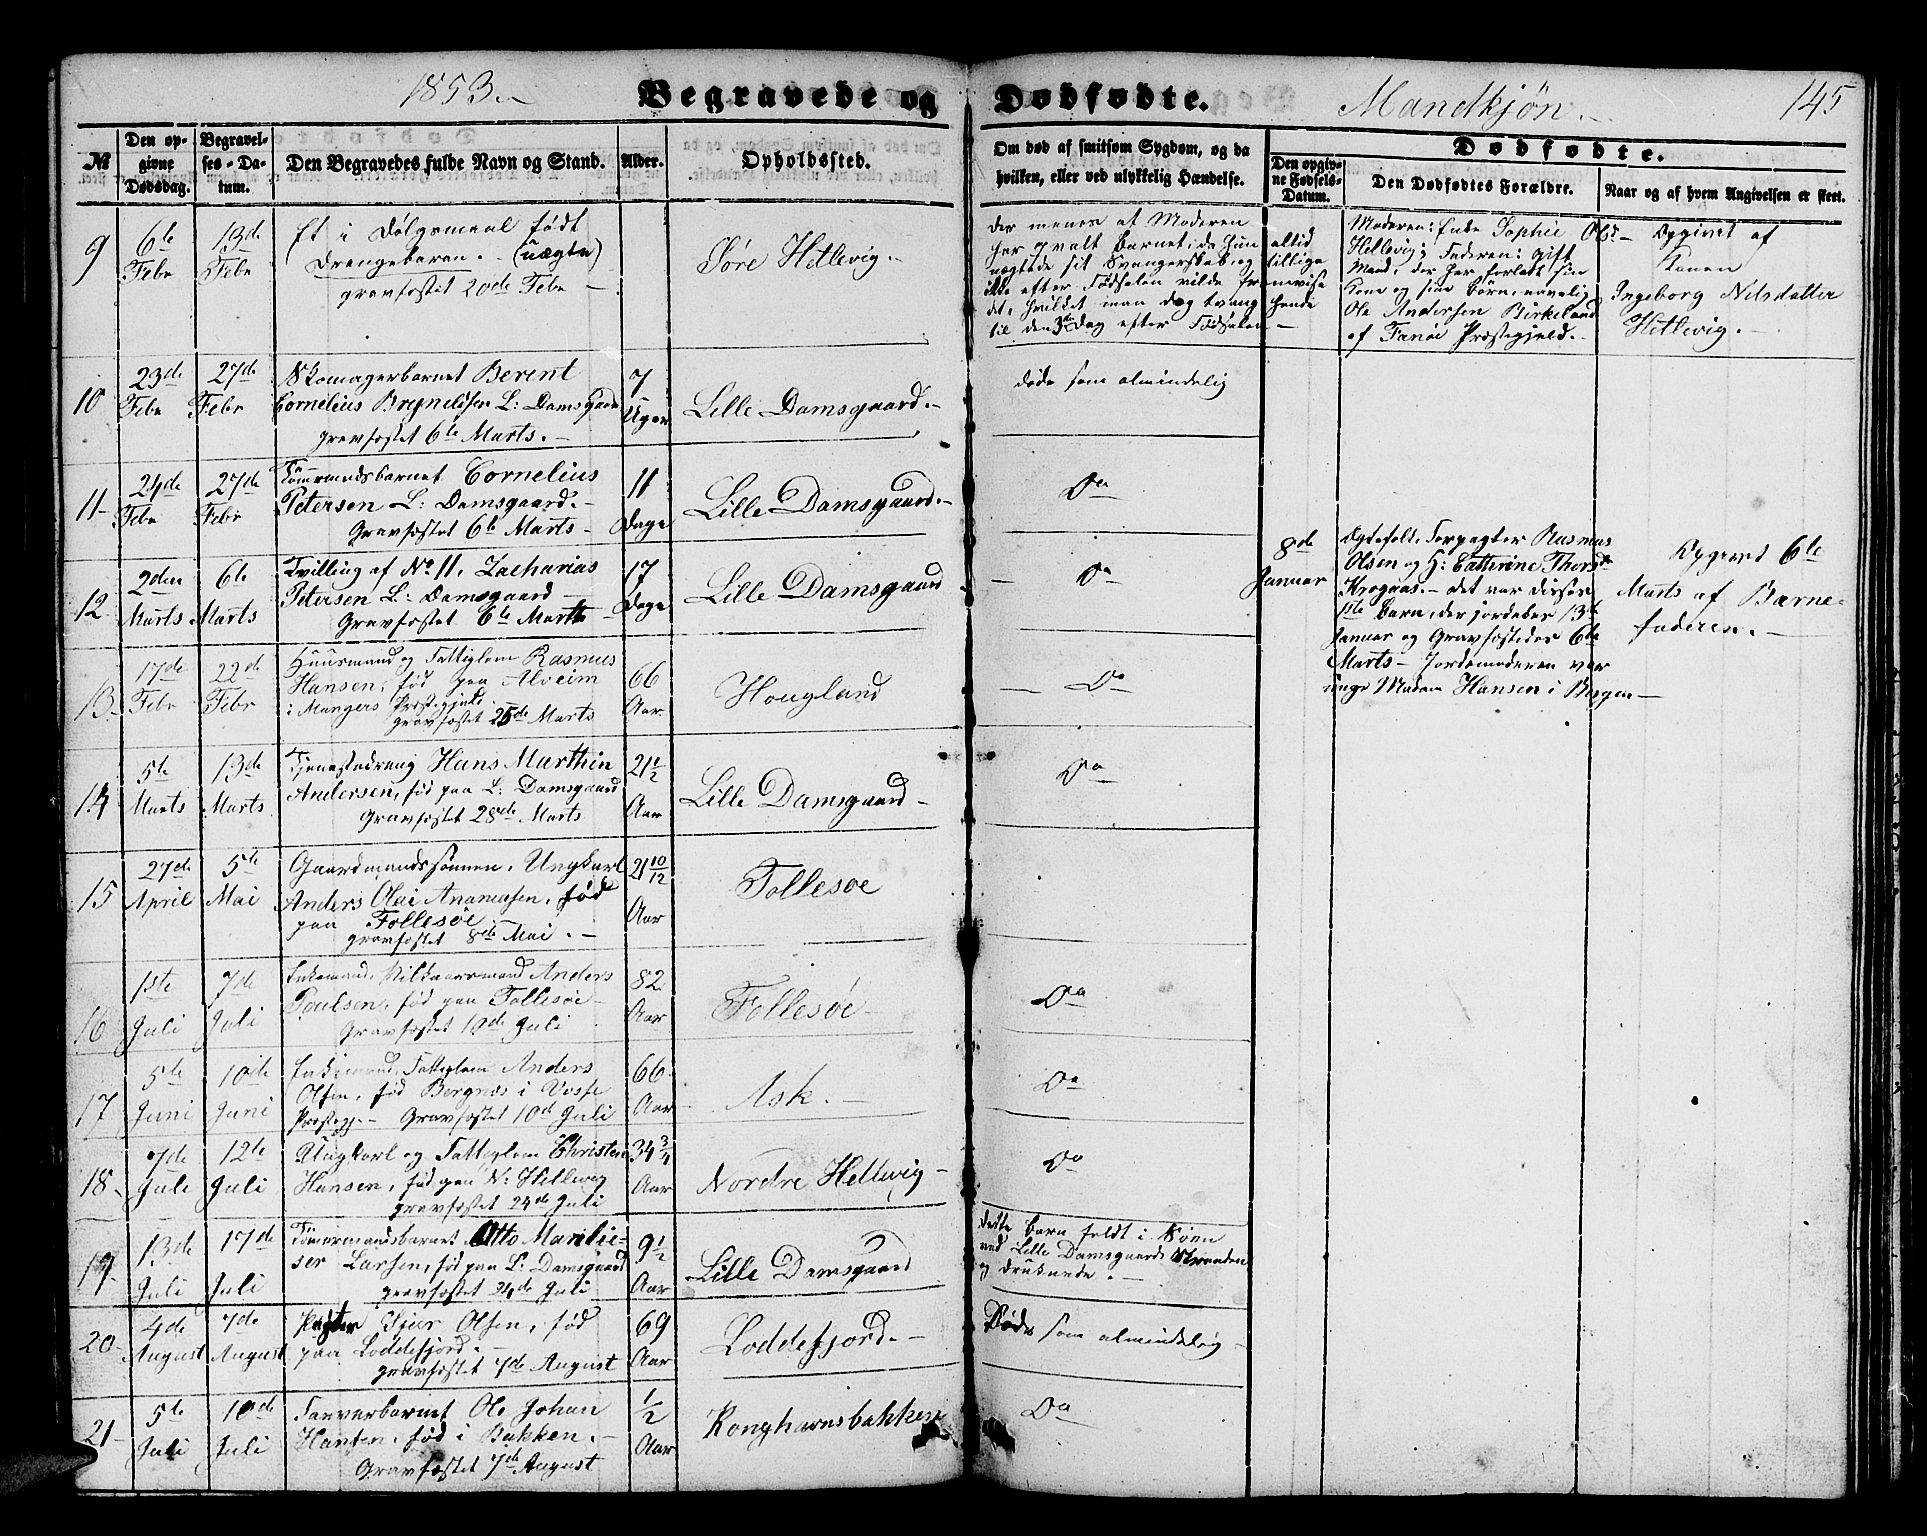 1853.
Begravede og Dødfødte.
Mandkjøn.
145
No
Den opgivne Dødsdag.
Begravelses-Datum.
Den Begravedes fulde Navn og Stand.
Alder.
Opholdssted.
Om død af smitsom Sygdom, og da hvilken, eller ved ulykkelig Hændelse.
Dødfødte.
Den opgivne Fødsels-Datum.
Den Dødfødtes Forældre.
Naar og af hvem Angivelsen er skeet.
9
6te Febr
13de Febr
Et i Dølgsmaal født
Drengebarn. (uægte)
gravfæstet 20de Febr
Søre Hetlevig.
Der menes at Moderen
har qvalt Barnet, da hun altid
nægtede sit Svangerskab og tillige
ikke efter Fødselen vilde fremvise
det, hvilket man dog tvang hende
til den 3die Dag efter Fødselen
Moderen: Enke Sophie Olsd
Hetlevig; Faderen: gift
Mand, der har forladt sin
Kone og sine Børn, navnlig
Ole Andersen Birkeland
af Fanøe Præstegjeld.
Opgivet af
Konen
Ingeborg Nilsdatter
Hetlevig.
10
23de Febr
27de Febr
Skomagerbarnet Berent
Cornelius Brynelsen L: Damsgaard
gravfæstet 6te Marts.
7 Uger
Lille Damsgaard.
døde som almindelig
11
24de Febr
27de Febr
Tømmermandsbarnet Cornelius
Petersen L: Damsgaard.
Gravfæstet 6te Marts
11 Dage
Lille Damsgaard.
Do
12
2den Marts
6te Marts
Tvilling af No 11, Zacharias
Petersen L: Damsgaard
Gravfæstet 6te Marts
17 Dage
Lille Damsgaard
Do
8de Januar
Ægtefolk, Forpagter Rasmus
Olsen og H: Cathrine Thorsd
Krognæs. det var disses
1ste Barn, der jordedes 13de
Januar og Gravfæstedes 6te
Marts. Jordemoderen var
unge Madam Hansen i Bergen
Opgivet 6te
Marts af Barne-
faderen.
13
17de Febr
22de Febr
Huusmand og Fattiglem Rasmus
Hansen, fød paa Alveim
i Mangers Præstegjeld.
gravfæstet 25de Marts
66 Aar
Hougland
Do
14
5te Marts
13de Marts
Tjenestedreng Hans Marthin
Andersen, fød paa L: Damsgaard
Gravfæstet 28de Marts
21 1/2 Aar
Lille Damsgaard
Do
15
27de April
5te Mai
Gaardmandssønnen, Ungkarl
Anders Olai Ananiasen, fød
paa Follesøe
gravfæstet 8de Mai.
21 10/12 Aar
Follesøe
16
1ste Juli
7de Juli
Enkemand, Vilkaarsmand Anders
Poulsen, fød paa Follesøe
Gravfæstet 10de Juli
82 Aar
Follesøe
Do
17
5te Juni
10de Juni
Enkemand, Fattiglem Anders
Olsen, fød Bergnæs i Vosse
Præstegj. Gravfæstet 10de Juli
66 Aar
Ask.
Do
18
7de Juli
12te Juli
Ungkarl og Fattiglem Christen
Hansen, fød paa N: Hetlevig
gravfæstet 24de Juli
34 3/4 Aar
Nordre Hetlevig
Do
19
13de Juli
17de Juli
Tømmermandsbarnet Otto Marilie-
ser Larsen, fød paa L: Damsgaard
gravfæstet 24de Juli
9 1/2 Aar
Lille Damsgaard
dette Barn faldt i Søen
ved Lille Damsgaards Stranden
og druknede.
20
4de August
7de August
Olsen, fød
paa Loddefjord.
gravfæstet 7de August
69 Aar
Loddefjord.
Døde som almindelig
21
5te Juli
10de Juli
Farverbarnet Ole Johan
Hansen, fød i Bakken.
Gravfæstet 7de August
1/2 Aar
Ronghavnsbakken
Do